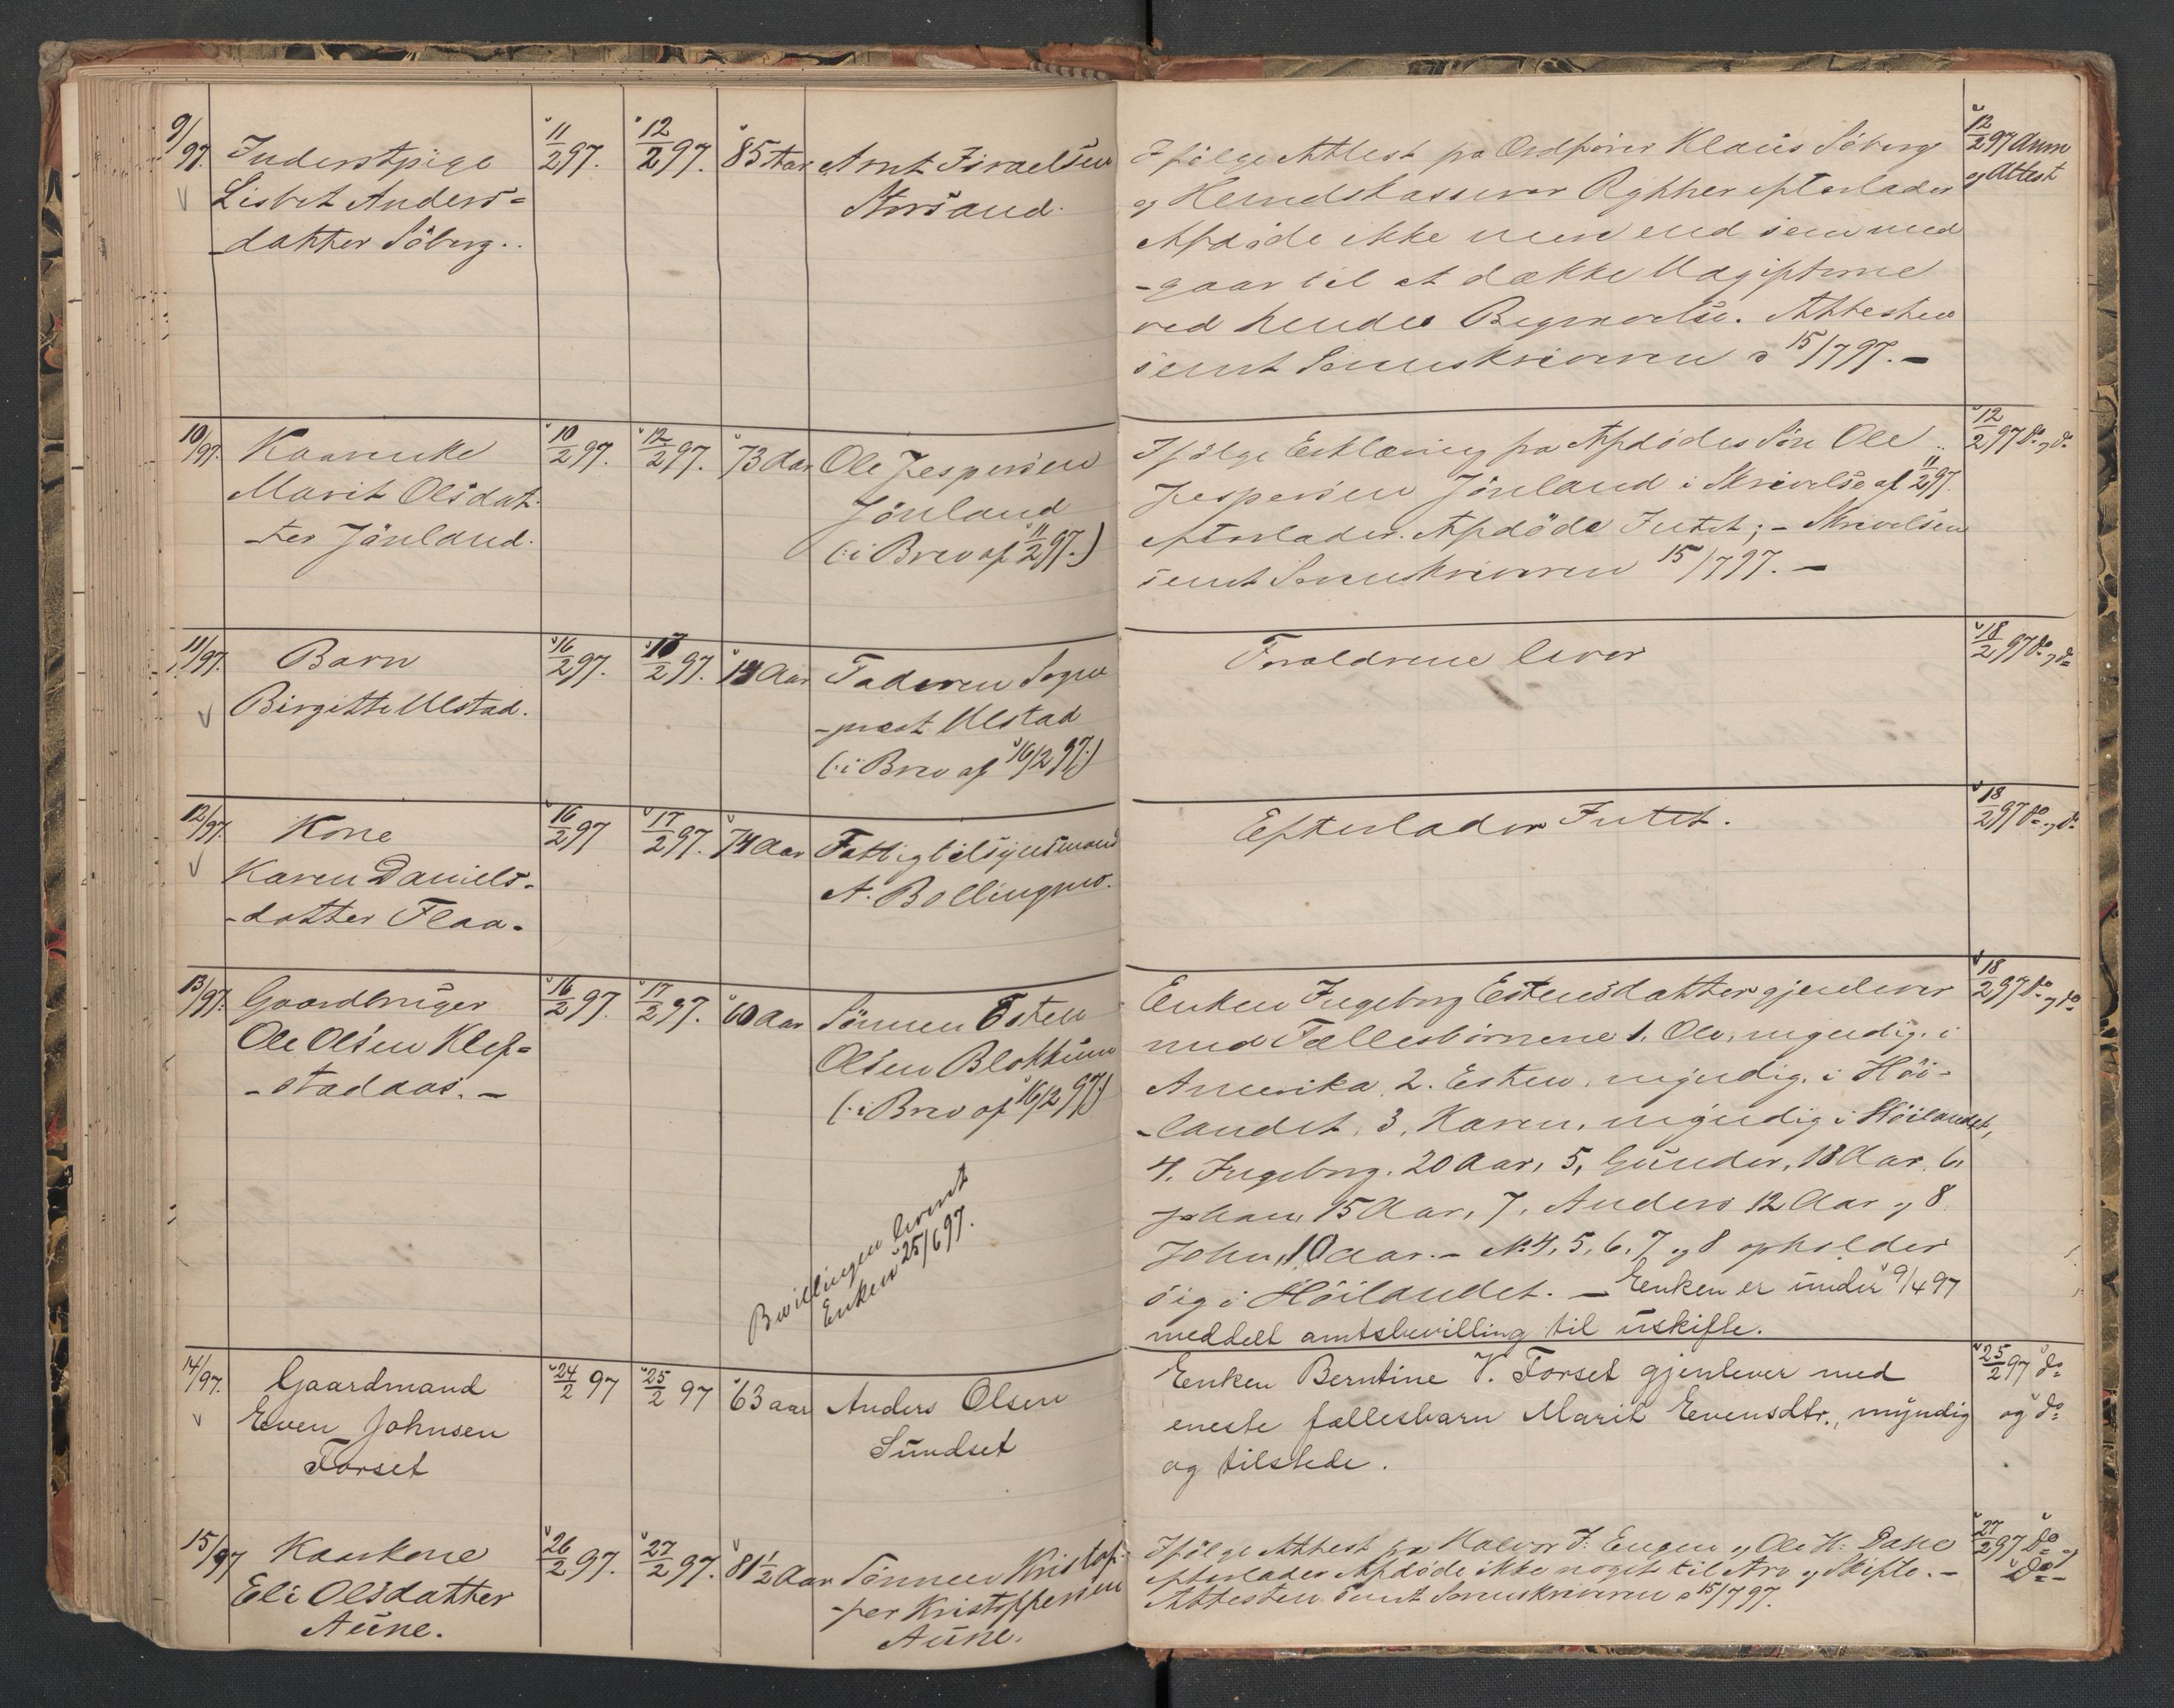 9/97. Inderstpige 11/2 97. 12/2 97. 85 Aar Arnt Israelsen
Lisbet Anders=
-datter Söberg..
Storsand.
Ifölge Attest fra Ordförer Klaus Söberg
og Herredskasserer Rygh her efterlader
Afdöde ikke mere end som med
-gaar til at dække Udgifterne
ved hendes Begravelse. Attesten
sendt Sorenskriveren d 15/7 97. —
12/2 97 Anm
og Attest
10/97. Kaarenke 10/2 97. 12/2 97. 73 Aar Ole Jespersen
Marit Olsdat-
-ter Jönland.
Jönland
(:i Brev af 11/2 97.)
Ifölge Erklæring fra Afdödes Sön Ole
Jespersen Jönland i Skrivelse af 11/2 97.
efterlader Afdöde Intet; - Skrivelsen
sendt Sorenskriveren 15/7 97. —
12/2 97 do og do
11/97. Barn 16/2 97. 18/2 97. 14 Aar Faderen Sogne
Birgitte Ulstad.
-præst Ulstad
(:i Brev af 16/2 97.)
Forældrene lever
18/2 97 do og do
12/97. Kone 16/2 97 17/2 97. 74 Aar Fattigtilsynsmand
Karen Daniels-
-datter Flaa.
A. Bollingmo.
Efterlader Intet.
18/2 97 do og do
13/97. Gaardbruger 16/2 97. 17/2 97. 60 Aar Sönnen Esten
Ole Olsen Klef=
-stadaas. —
Olsen Blokkum
(:i Brev af 16/2 97.)
Bevillingen levert
Enken 25/6 97.
Enken Ingeborg Estensdatter gjenlever
med Fællesbörnene 1. Ole, myndig, i
Amerika, 2. Esten, myndig, i Höi-
-landet, 3, Karen, myndig i Höilandet,
4. Ingeborg, 20 Aar, 5, Gunder, 18 Aar, 6,
Johan, 15 Aar, 7, Anders 12 Aar og 8
John, 10 aar. - No 4, 5, 6, 7 og 8 opholder
sig i Höilandet. — Enken er under 9/4 97
meddelt amtsbevilling til uskifte.
18/2 97 do og do
14/97. Gaardmand 24/2 97 25/2 97 63 aar Anders Olsen
Even Johnsen
Forset
Sundset
Enken Berntine V. Forset gjenlever med
eneste fællesbarn Marit Evensdtr., myndig
og tilstede.
25/2 97 do
og do
15/97 Kaarkone 26/2 97. 27/2 97. 81 1/2 Aar Sönnen Kristof-
Eli Olsdatter
Aune.
-fer Kristoffersen
Aune.
Ifölge Attest fra Halvor J. Engen og Ole H. Dahl
efterlader Afdöde ikke noget til Arv og Skifte. —
Attesten sendt Sorenskriveren d 15/7 97.
27/2 97 Do og
Do